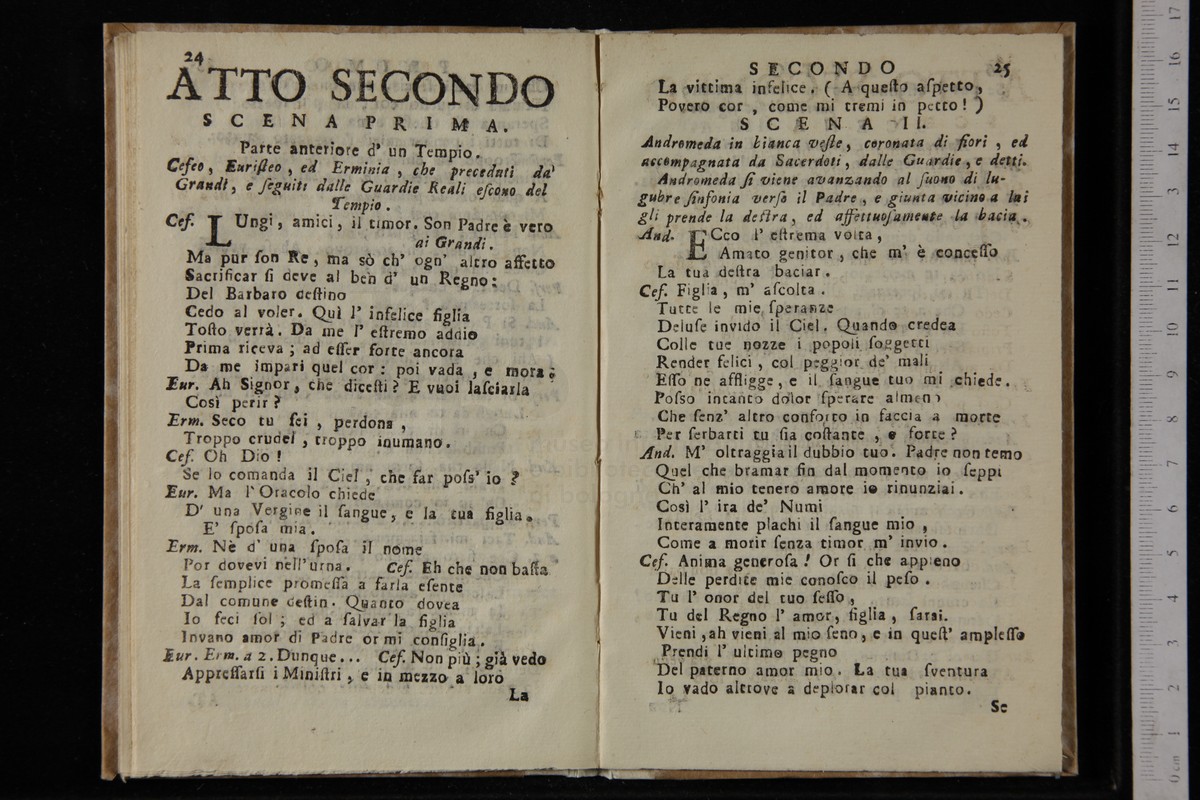 24
ATTO SECONDO
SCENA PRIMA.
Parte anteriore d' un Tempio.
Cefeo, Euriſteo, ed Erminia, che preceduti da'
Grandi, e ſeguiti dalle Guardie Reali eſcono del
Tempio.
Cef. LUngi, amici, il timor. Son Padre è vero
ai Grandi.
Ma pur ſon Re, ma sò ch' ogn' altro affetto
Sacrificar ſi deve al ben d' un Regno:
Del Barbaro deſtino
Cedo al voler. Quì l' infelice figlia
Toſto verrà. Da me l' eſtremo addio
Prima riceva; ad eſſer forte ancora
Da me impari quel cor: poi vada, e mora.
Eur. Ah Signor, che diceſti? E vuoi laſciarla
Così perir?
Erm. Seco tu ſei, perdona,
Troppo crudel, troppo inumano.
Cef. Oh Dio!
Se lo comanda il Ciel, che far poſs' io?
Eur. Ma l' Oracolo chiede
D' una Vergine il ſangue, e la tua figlia.
E' ſpoſa mia.
Erm. Nè d' una ſpoſa il nome
Por dovevi nell' urna. Cef. Eh che non baſta
La ſemplice promeſſa a farla eſente
Dal comune deſtin. Quanto dovea
Io feci ſol; ed a ſalvar la figlia
Invano amor di Padre or mi conſiglia.
Eur. Erm. a 2. Dunque... Cef. Non più; già vedo
Appreſſarſi i Miniſtri, e in mezzo a loro
La
SECONDO 25
La vittima infelice. (A queſto aſpetto,
Povero cor, come mi tremi in petto!)
SCENA II.
Andromeda in bianca veſte, coronata di fiori, ed
accompagnata da Sacerdoti, dalle Guardie, e detti.
Andromeda ſi viene avanzando al ſuono di lu-
gubre ſinfonia verſo il Padre, e giunta vicino a lui
gli prende la deſtra, ed affettuoſamente la bacia.
And. ECco l' eſtrema volta,
Amato genitor, che m' è conceſſo
La tua deſtra baciar.
Cef. Figlia, m' aſcolta.
Tutte le mie ſperanze
Deluſe invido il Ciel. Quando credea
Colle tue nozze i popoli ſoggetti
Render felici, col peggior de' mali
Eſſo ne affligge, e il ſangue tuo mi chiede.
Poſso intanto dolor ſperare almeno
Che ſenz' altro conforto in faccia a morte
Per ſerbarti tu ſia coſtante, e forte?
And. M' oltraggia il dubbio tuo. Padre non temo
Quel che bramar fin dal momento io ſeppi
Ch' al mio tenero amore io rinunziai.
Così l' ira de' Numi
Interamente plachi il ſangue mio,
Come a morir ſenza timor m' invio.
Cef. Anima generoſa! Or ſi che appieno
Delle perdite mie conoſco il peſo.
Tu l' onor del tuo ſeſſo,
Tu del Regno l' amor, figlia, ſarai.
Vieni, ah vieni al mio ſeno, e in queſt' ampleſſo
Prendi l' ultimo pegno
Del paterno amor mio. La tua ſventura
Io vado altrove a deplorar col pianto.
Se